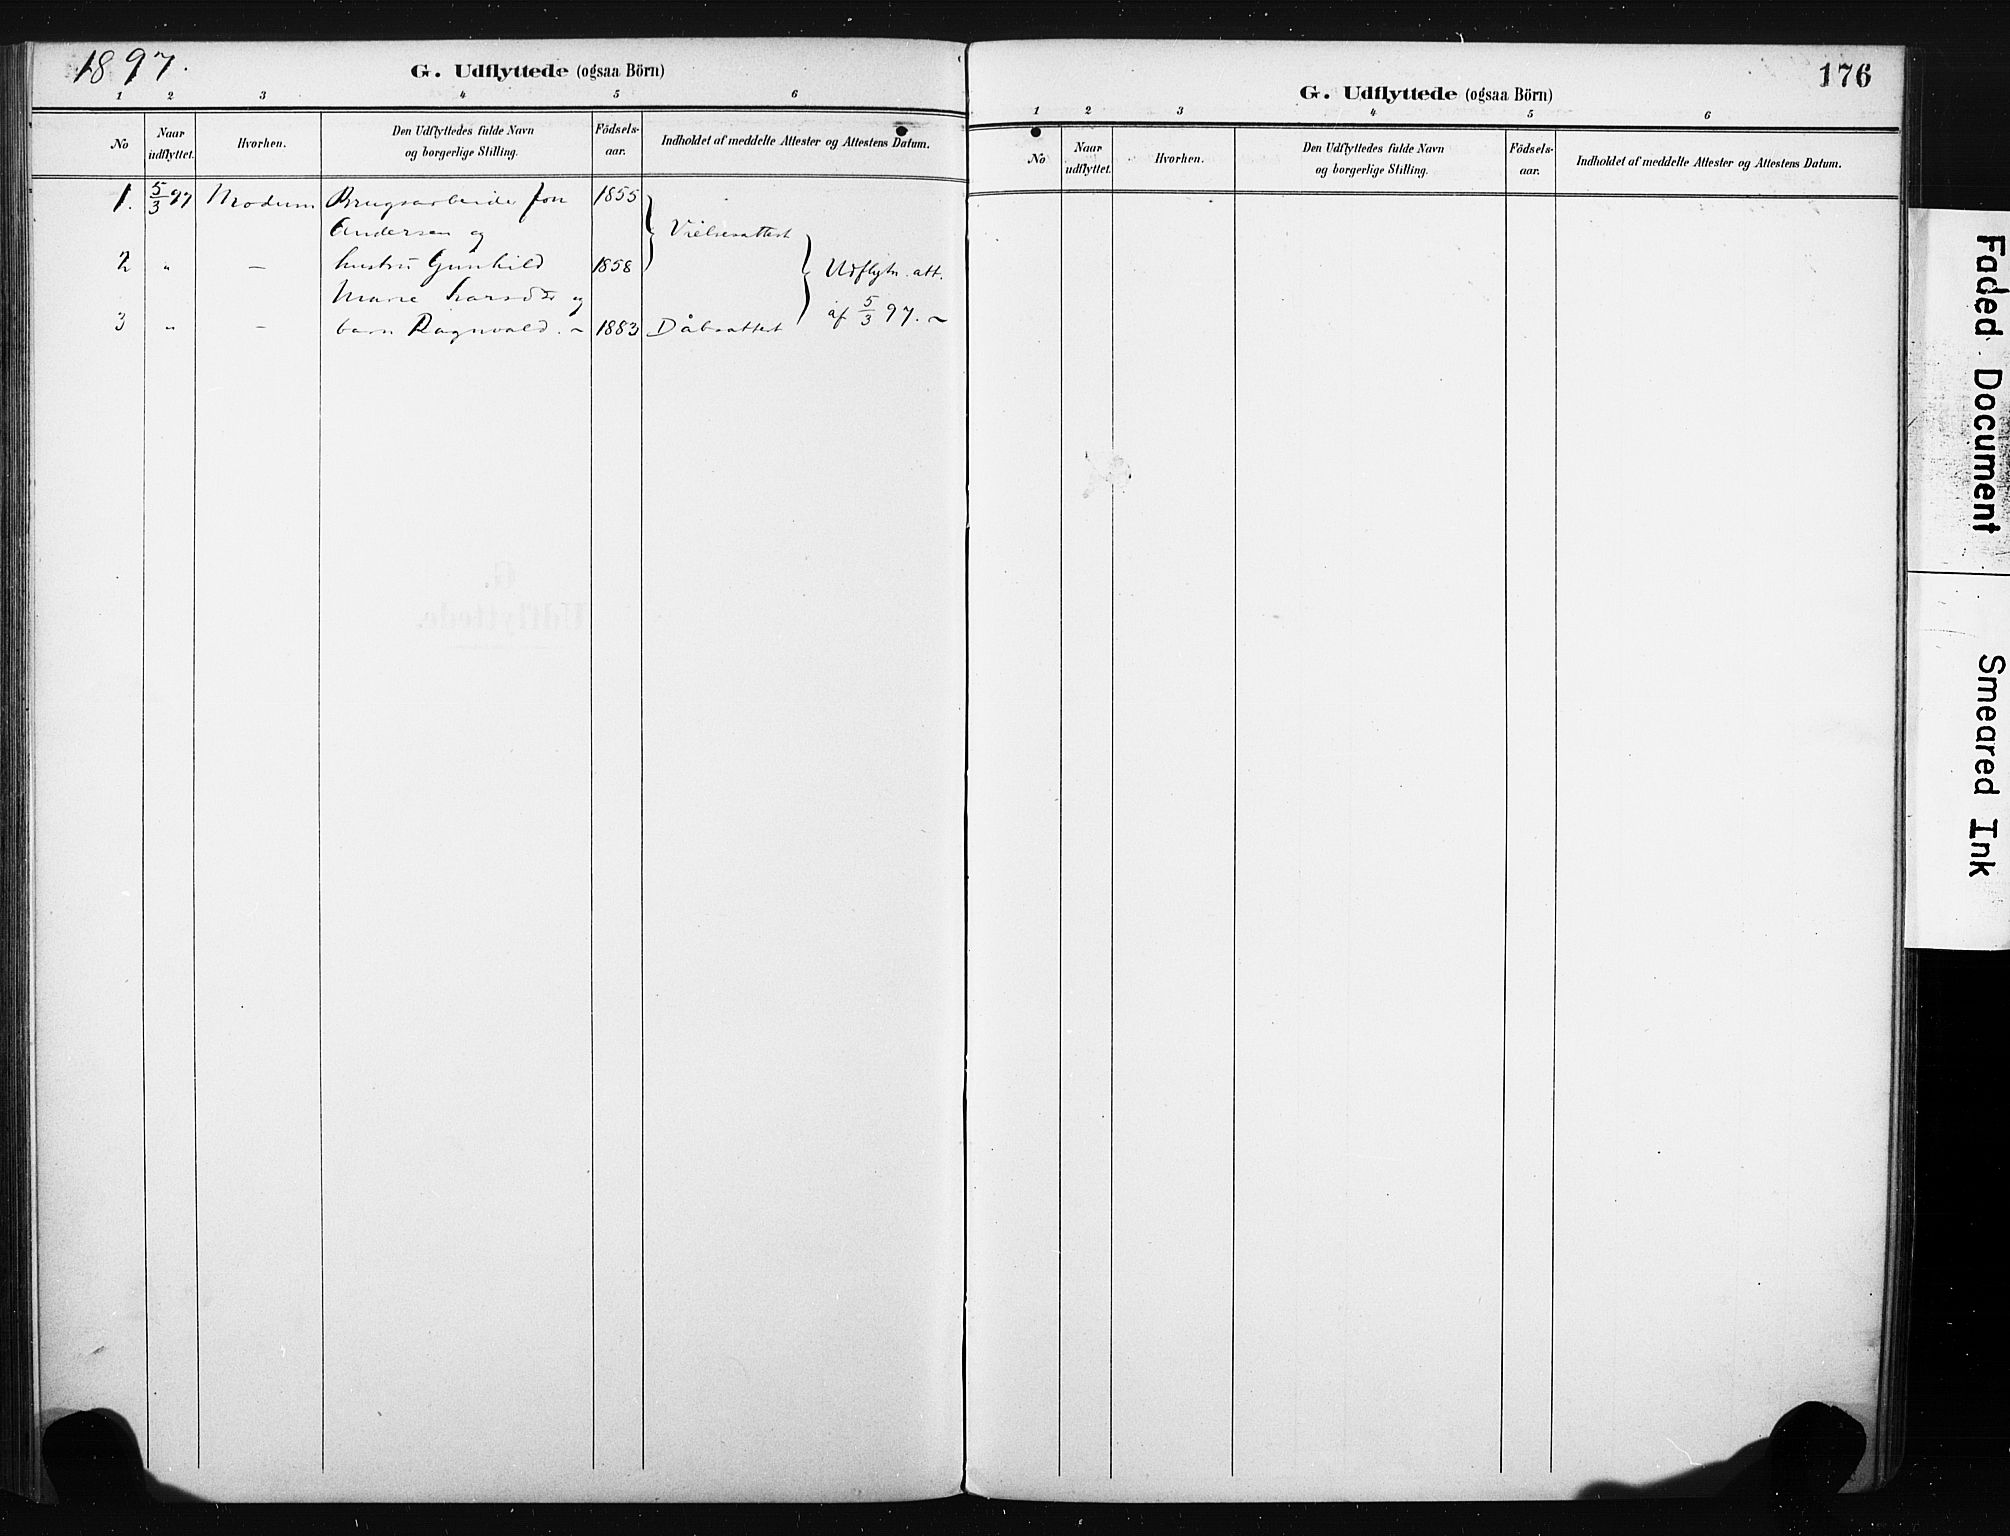 1897.
G. Udflyttede (ogsaa Börn)
1 2 3 4 5 6
No
Naar udflyttet.
Hvorhen.
Den Udflyttedes fulde Navn og borgerlige Stilling.
Födsels-aar.
Indholdet af meddelte Attester og Attestens Datum.
1. 5/3 97 Modum Brugsarbeider Jon 1855
Andersen og Vielsesattest
2 " — hustru Gunhild 1858 Udflytn. att.
Marie Larsdtr og af 5/3 97. ~
3 " — barn Ragnvald. ~ 1883 Dåbsattest
176
G. Udflyttede (ogsaa Börn)
1 2 3 4 5 6
No
Naar udflyttet.
Hvorhen.
Den Udflyttedes fulde Navn og borgerlige Stilling.
Födsels-aar.
Indholdet af meddelte Attester og Attestens Datum.
G.
Udflyttede.
Faded Document
Smeared Ink